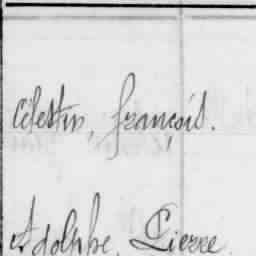 Célestin, françois.
Adolphe, Pierre